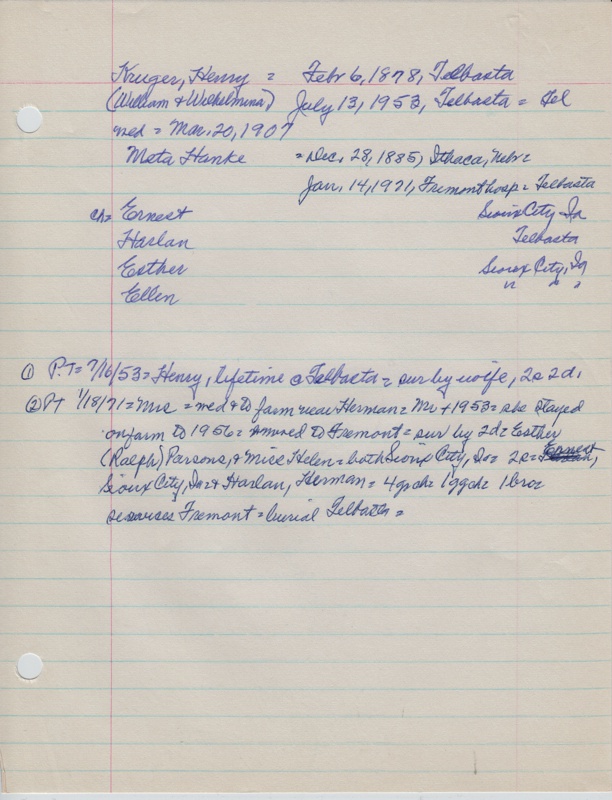 Kruger, Henry = Febr 6, 1878, Telbasta
(William & Wilhelmina) July 13, 1953, Telbasta = Tel
med = Mar. 20, 1907
Meta Hanke = Dec. 28, 1885, Ithaca, Nebr =
Jan. 14, 1971, Fremont hosp = Telbasta
ch = Ernest Sioux City - Ia
Harlan Telbasta
Esther Sioux City, Ia
Ellen " " "
① P.T = 7/16/53 = Henry, lifetime @ Telbasta = sur by wife, 2s 2d,
② PT 1/18/71 = Mrs = med & to farm near Herman = Mr + 1953 = she stayed
on farm to 1956 = moved to Fremont = sur by 2d = Esther
(Ralph) Parsons, & Miss Helen = both Sioux City, Ia = 2s = Ernest,
Sioux City, Ia & Harlan, Herman = 4 grch = 1 ggch = 1 bro =
services Fremont = burial Telbasta =